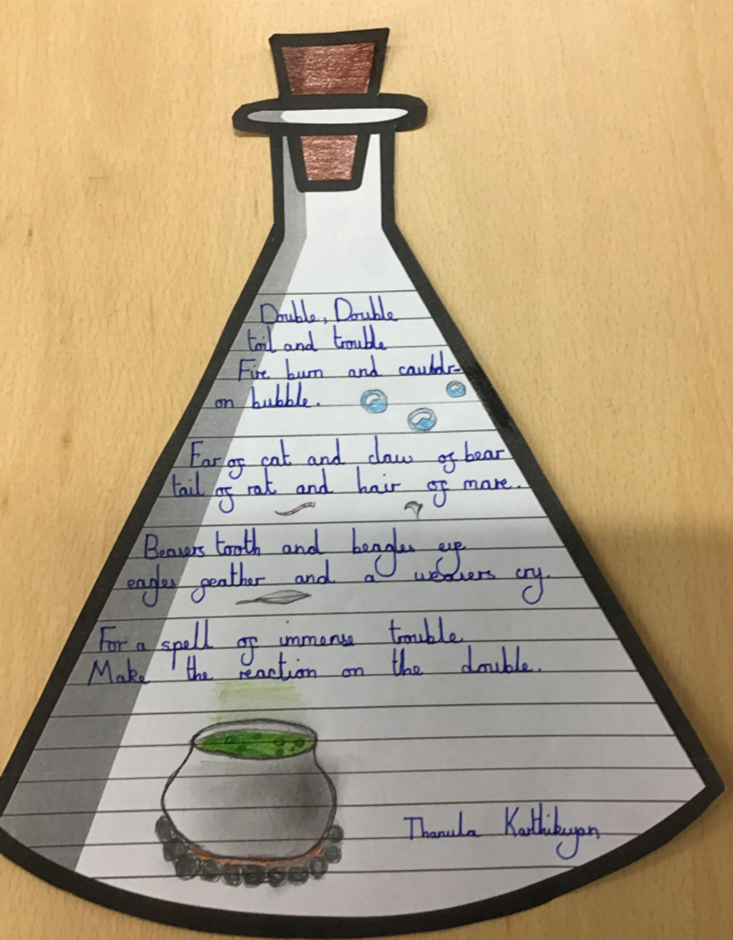 Double, Double
toil and trouble
Fire burn and cauldr-
on bubble.
Ear of cat and claw of bear
tail of rat and hair of mare.
Beavers tooth and beagles eye
eagles feather and a weavers cry.
For a spell of immense trouble
Make the reaction on the double.
Thanula Karthikuyan